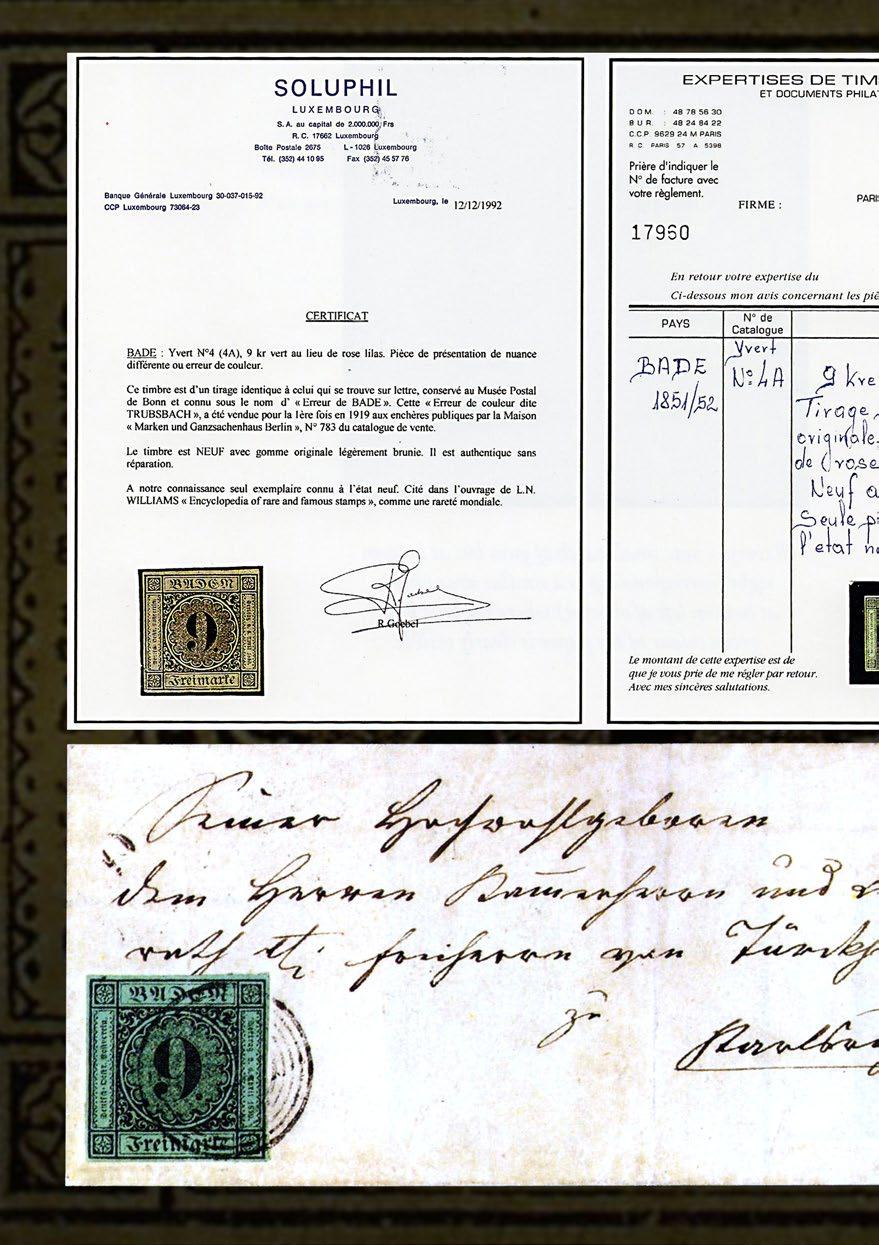 SOLUPHIL
LUXEMBOURG
S. A. au capital de 2.000.000 Frs
R. C. 17662 Luxembourg
Boîte Postale 2675 L - 1026 Luxembourg
Tél. (352) 44 10 95 Fax (352) 45 57 76
Banque Générale Luxembourg 30-037-015-92
CCP Luxembourg 73064-23
Luxembourg, le 12/12/1992
CERTIFICAT
BADE : Yvert N°4 (4A), 9 kr vert au lieu de rose lilas. Pièce de présentation de nuance
différente ou erreur de couleur.
Ce timbre est d'un tirage identique à celui qui se trouve sur lettre, conservé au Musée Postal
de Bonn et connu sous le nom d' « Erreur de BADE ». Cette « Erreur de couleur dite
TRUBSBACH », a été vendue pour la 1ère fois en 1919 aux enchères publiques par la Maison
« Marken und Ganzsachenhaus Berlin », N° 783 du catalogue de vente.
Le timbre est NEUF avec gomme originale légèrement brunie. Il est authentique sans
réparation.
A notre connaissance seul exemplaire connu à l'état neuf. Cité dans l'ouvrage de L.N.
WILLIAMS « Encyclopedia of rare and famous stamps », comme une rareté mondiale.
BADEN
9
Freimarke
R.Goebel
EXPERTISES DE TIM
ET DOCUMENTS PHILA
DOM. : 48 78 56 30
BUR. : 48 24 84 22
C.C.P. 9629 24 M PARIS
R C. PARIS 57 A 5398
Prière d'indiquer le
N° de facture avec
votre règlement.
FIRME :
PARIS
17960
En retour votre expertise du
Ci-dessous mon avis concernant les piè
PAYS
N° de
Catalogue
BADE
1851/52
Yvert
N° 4A
9 Kre
Tirage
originale.
de (rose
Neuf a
Seule pi
l'etat n
Le montant de cette expertise est de
que je vous prie de me régler par retour.
Avec mes sincères salutations.
Seiner Hochwohlgeboren
dem Herren Kammerherrn und
rath etc. freiherrn von Türckh
zu
Karlsru
BADEN
9
Freimarke